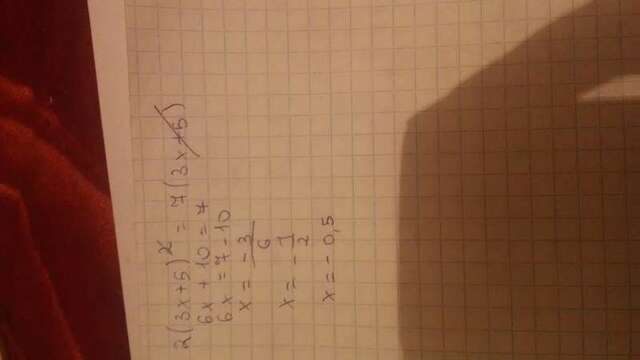 2(3x+5)² = 7(3x+5)
6x + 10 = 7
6x = 7 - 10
x = -3/6
x = -1/2
x = -0,5